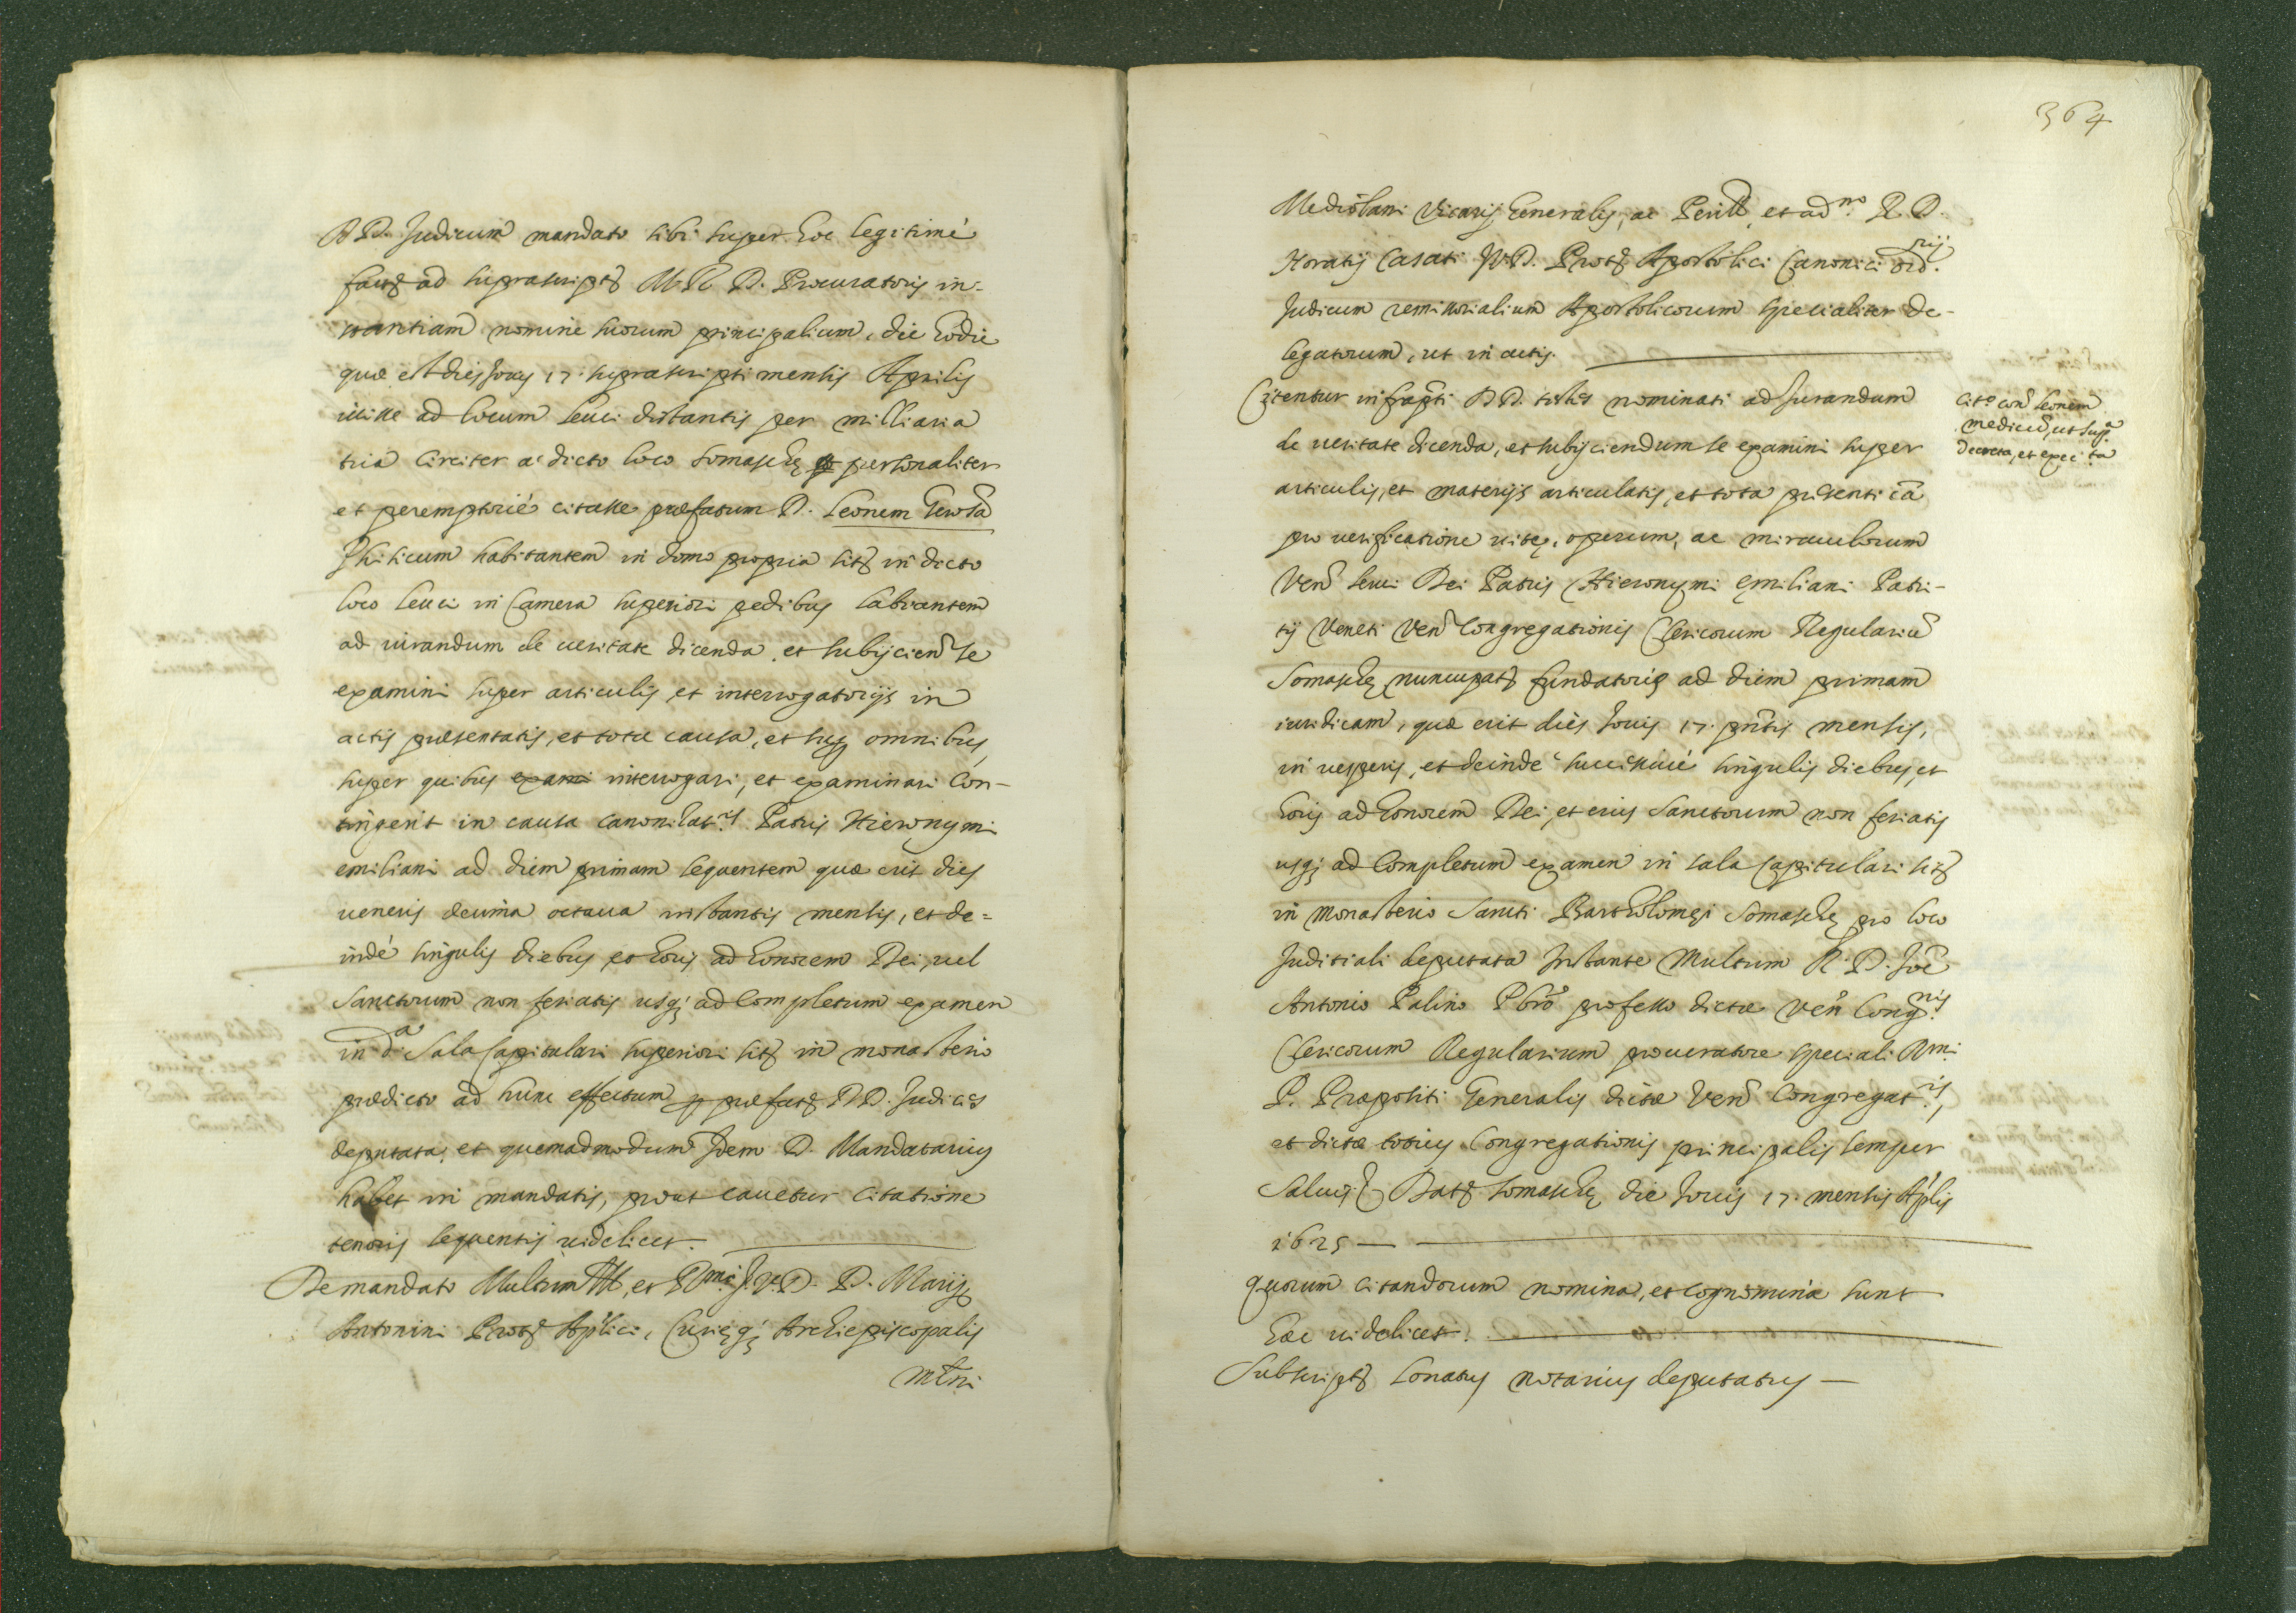 DD. Judicum mandato sibi super hoc legitimè
fact. ad suprascript. M. R. D. Procuratoris in-
stantiam nomine suorum principalium, die hodie
quæ est dies Jovis 17. suprascripti mensis Aprilis
ivisse ad locum Leuci distantis per milliaria
tria circiter a dicto loco Somaschę personaliter
et peremptoriè citasse præfatum D. Leonem
Phisicum habitantem in domo propria sit. in dicto
loco Leuci in Camera superiori pedibus labrantem
ad iurandum de veritate dicenda, et subijcien. se
examini super articulis, et interrogatorijs in
actis præsentatis, et tota causa, et sup. omnibus,
super quibus exami interrogari, et examinari con-
tingerit in causa canonizat.is Patris Hieronymi
emiliani ad diem primam sequentem quæ erit dies
veneris decima octava instantis mensis, et de=
indè singulis diebus, et horis ad honorem Dei, vel
Sanctorum non feriatis usq; ad completum examen
in d.a Sala Capitulari superiori sit. in monasterio
prædicto ad hunc effectum p præfat. DD. Judices
deputata, et quemadmodum Idem D. Mandatarius
habet in mandatis, prout cavetur citatione
tenoris sequentis videlicet.
De mandato Multum Ill., et R.mi J.V.D. D. Marij
Antonini Prot. Aplici, Curięq; Archiepiscopalis
Mlni
364
Mediolani Vicarij Generalis, ac Perill. et ad.m R. D.
Horatij Casati JVD. Prot. Apostolici Canonici ord.rij
Judicum remissorialium Apostolicorum specialiter de-
legatorum, ut in actis.
Citentur infrapti DD. testes nominati ad Iurandum
de veritate dicenda, et subijciendum se examini super
articulis, et materijs articulatis, et tota pñsenti cã
pro verificatione vitę, operum, ac miraculorum
Ven. servi Dei Patris Hieronymi Ęmiliani Patri-
tij Veneti Ven. Congregationis Clericorum Regularium
Somaschę nuncupat. fundatoris ad diem primam
iuridicam, quæ erit dies Jovis 17. pñtis mensis,
in vesperis, et deinde successivè singulis diebus, et
horis ad honorem Dei, et eius Sanctorum non feriatis
usq; ad completum examen in sala Capitulari sit.
in Monasterio Sancti Bartholomęi Somaschę pro loco
Juditiali deputata Instante Multum R. D. Joẽ
Antonio Palino Pbrõ professo dictæ Ven. Cong.nis
Clericorum Regularium procuratore speciali R.mi
P. Præpositi Generalis dictæ Ven. Congregat.is,
et dictæ totius Congregationis principalis semper
Salvis &c. Dat. Somaschę die Jovis 17. mensis Aplis
1625
Quorum citandorum nomina, et cognomina sunt
hæc videlicet.
Subscript. Conatus notarius deputatus
Cit.o con. Leonem
medicũ, ut sup.a
decreta, et exec.ta